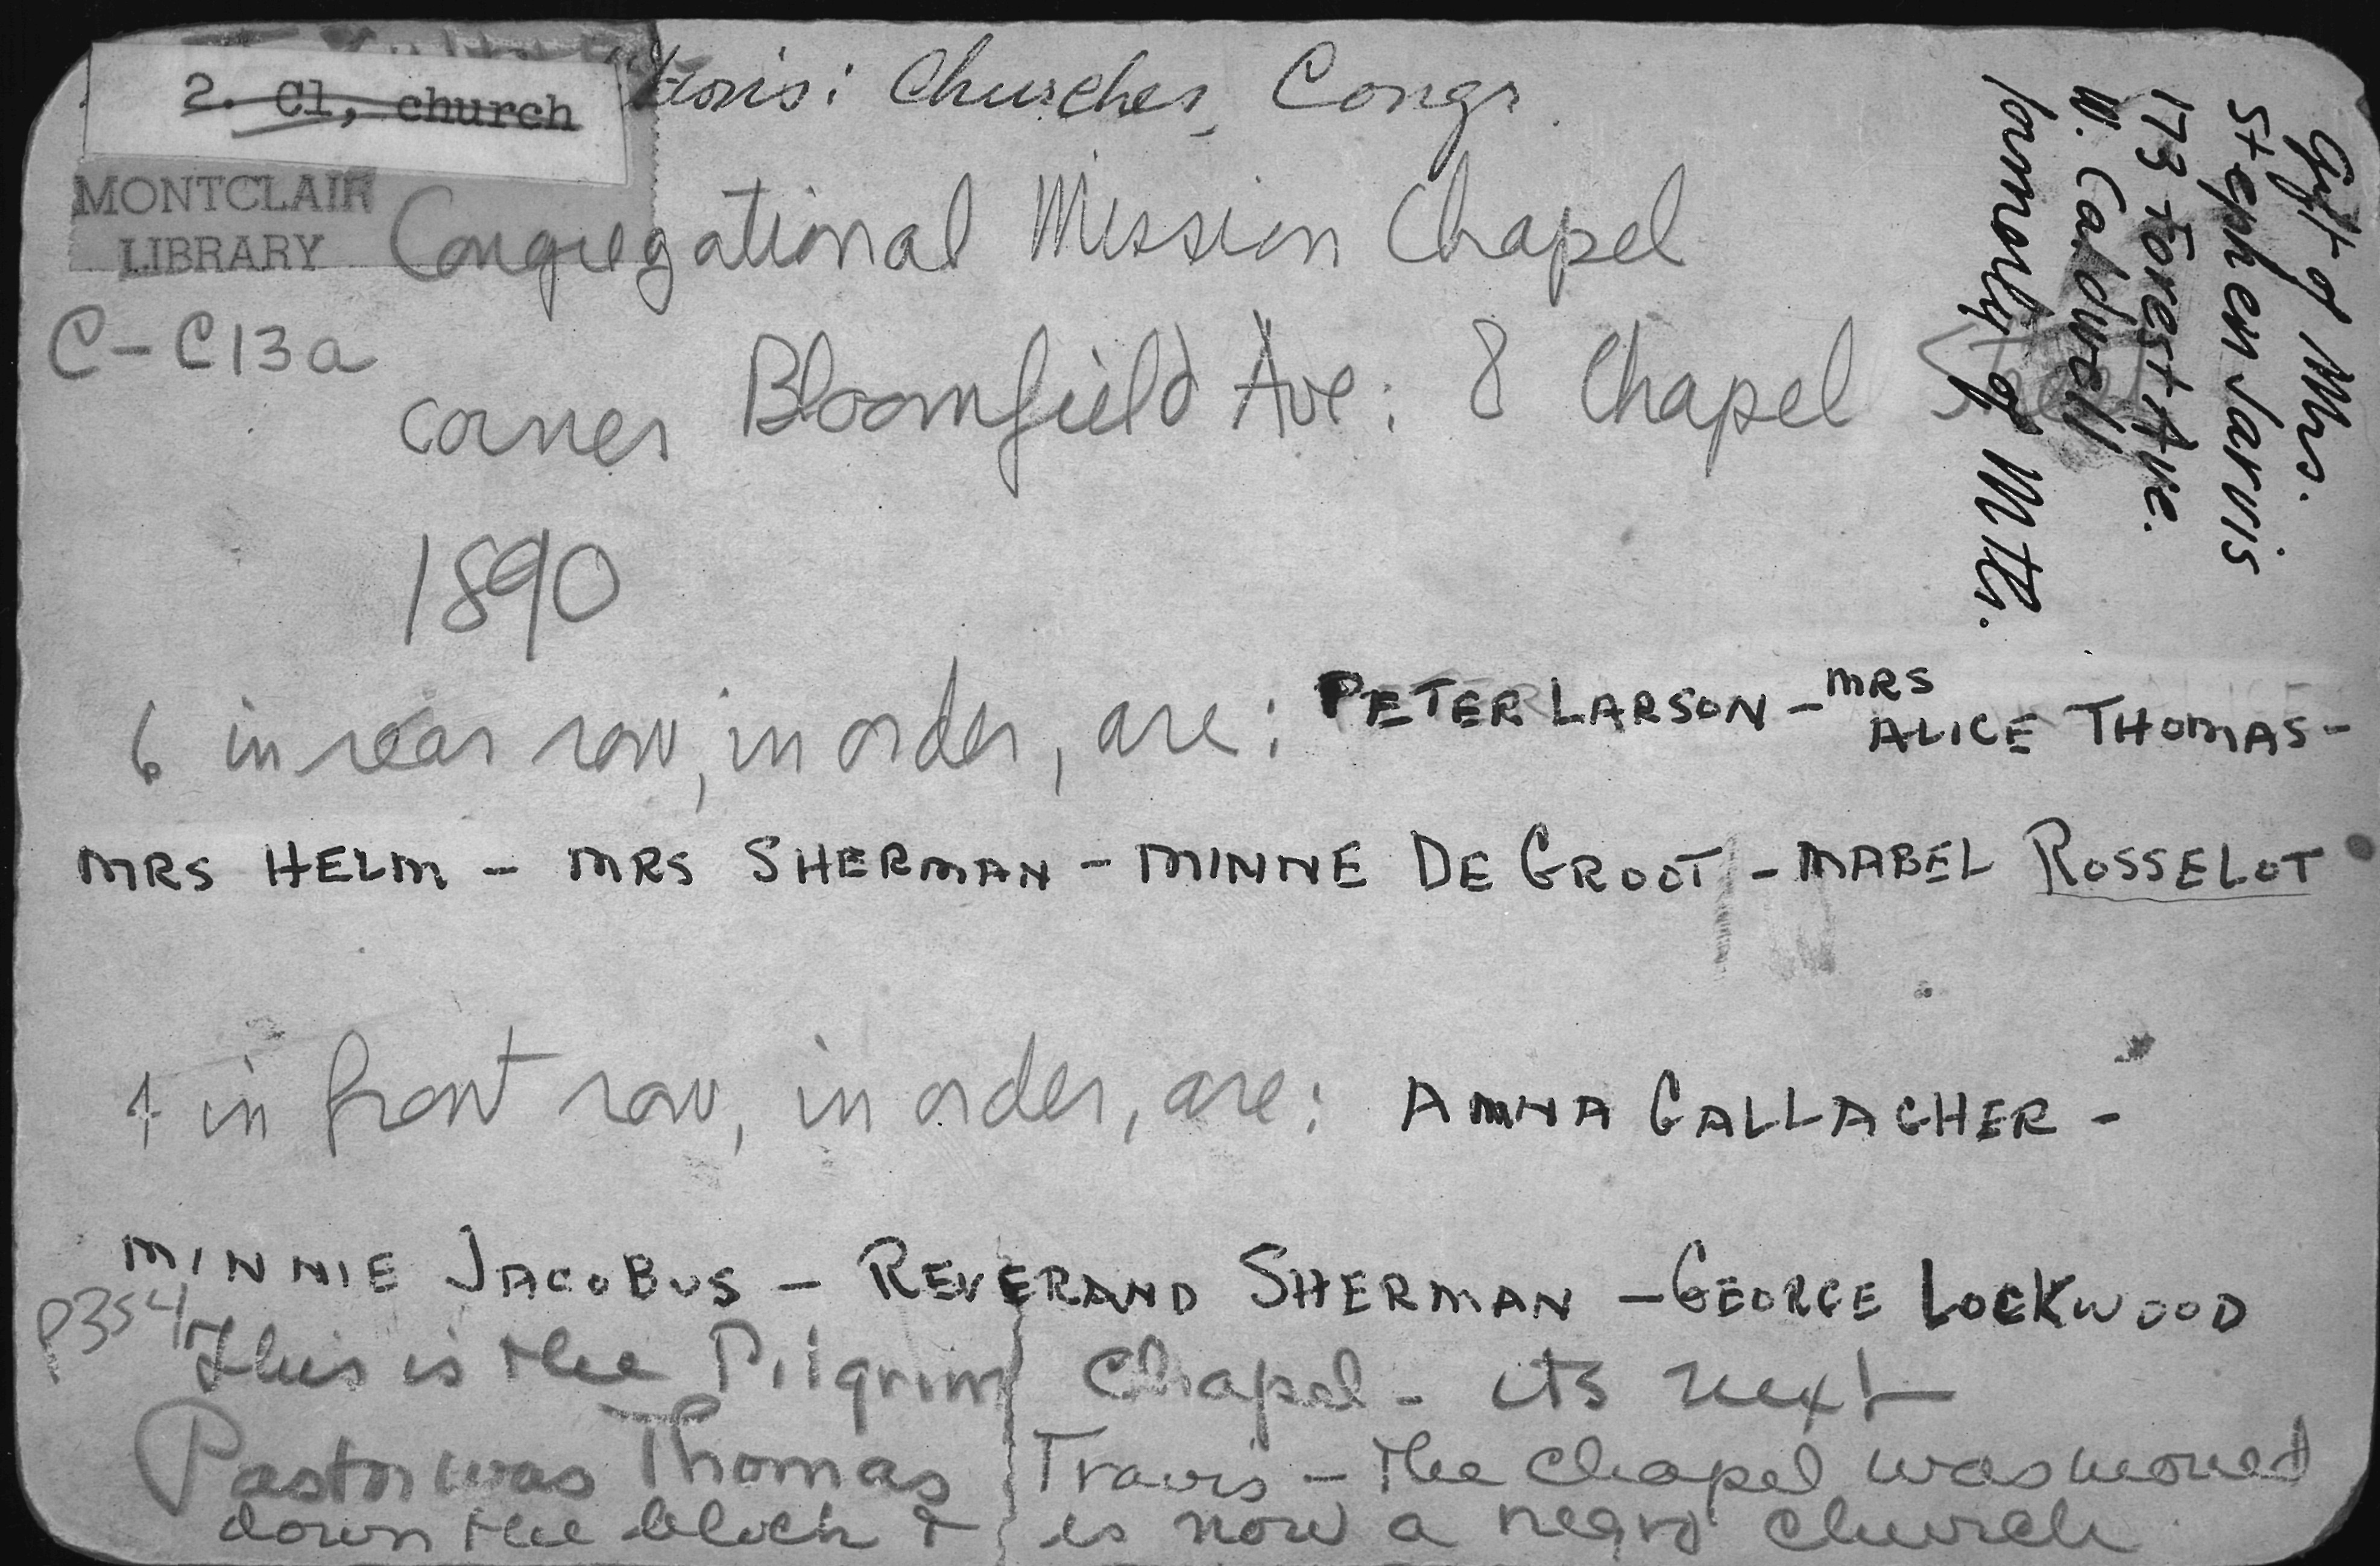 2. Cl, church
tions: Churches, Congr.
MONTCLAIR
LIBRARY
Congregational Mission Chapel
C-C13a
corner Bloomfield Ave: & Chapel
1890
6 in rear row, in order, are: PETER LARSON - MRS
ALICE THOMAS -
MRS HELM - MRS SHERMAN - MINNE DE GROOT - MABEL ROSSELOT
4 in front row, in order, are: ANNA GALLAGHER -
MINNIE JACOBUS - REVERAND SHERMAN - GEORGE LOCKWOOD
P354
This is the Pilgrim Chapel - its next
Pastor was Thomas Travis - the chapel was moved
down the block & is now a negro church
Gift of Mrs.
Stephen Jarvis
173 Forest Ave.
W. Caldwell
formerly of Mtcl.